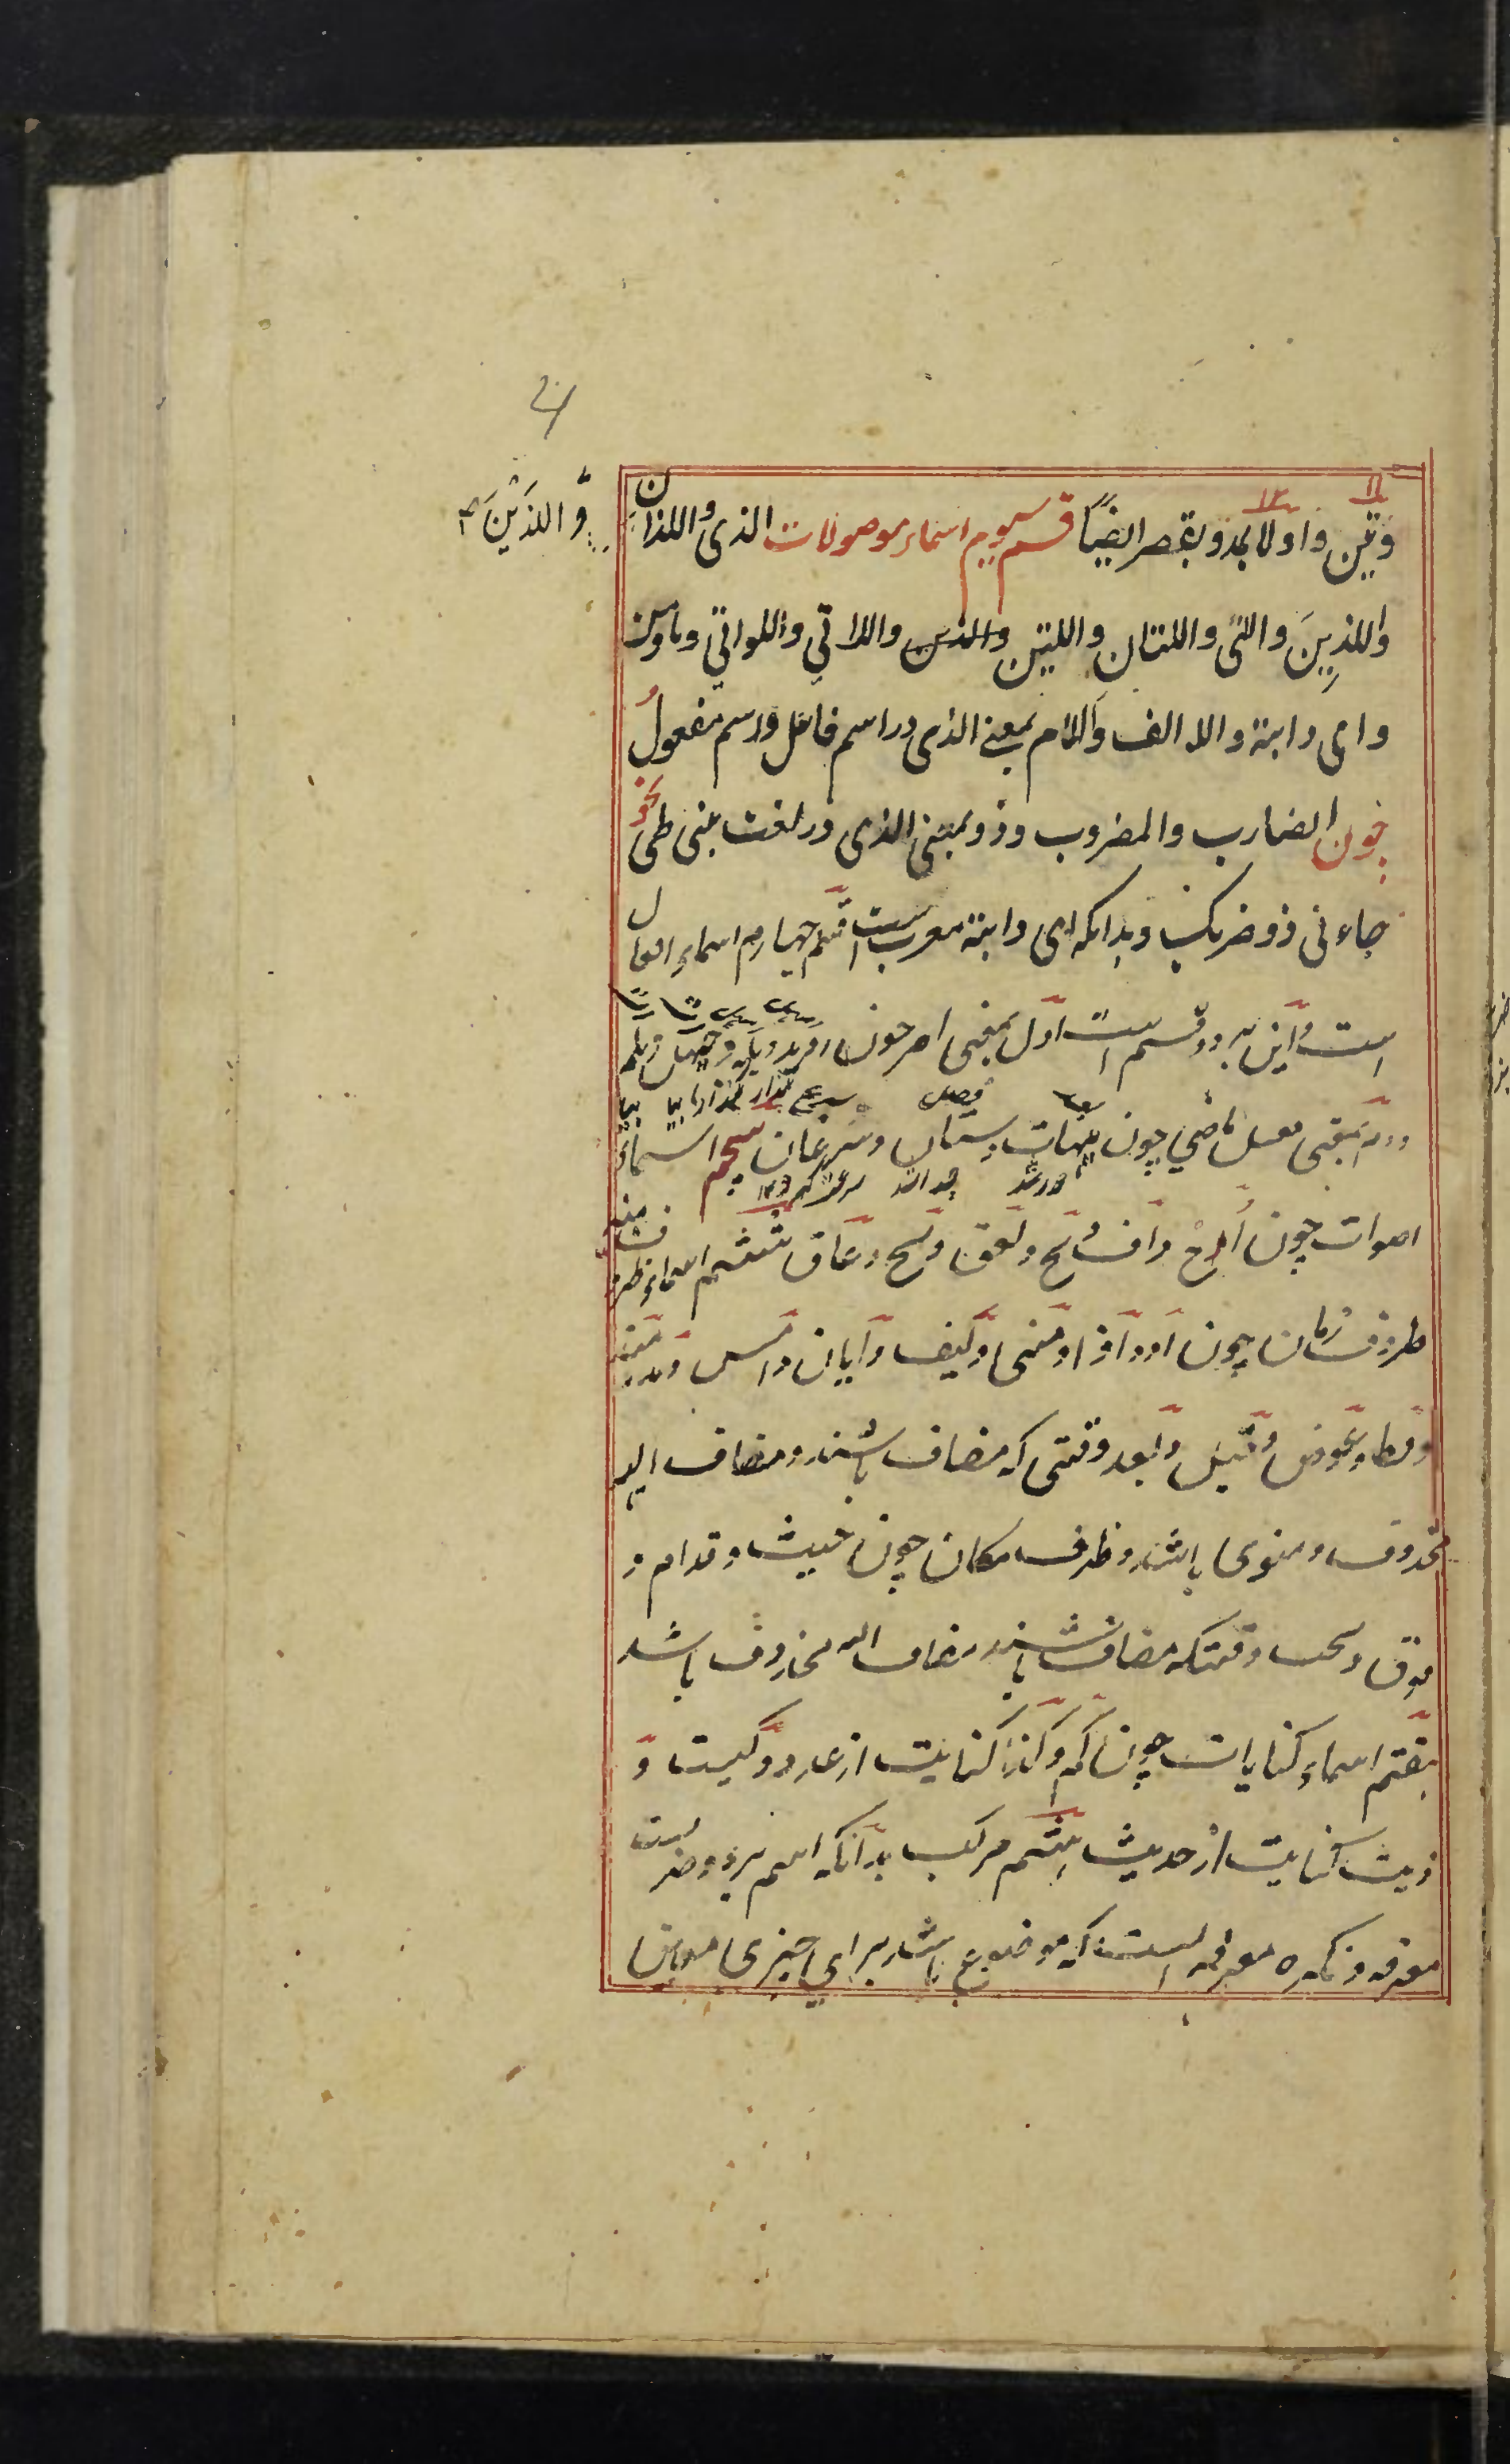 وتین واولا بمد وبقصر ایضاً قسم سیوم اسماء موصولات الذی واللذان
وَّاللذَیْنَ
واللذِینَ والتی واللتان واللتین واللاتی واللواتی وما ومن
وای وایة والالف واللام بمعنی الذی در اسم فاعل واسم مفعول
چون الضارب والمضروب وذو بمعنی الذی در لغت بنی طی نحو
جاءنی ذو ضربک وبدانکه ای وایة معرب است قسم چهارم اسماء افعال
است واین بر دو قسم است اول بمعنی امر چون روید وبله وحیهل وهلم
دوم بمعنی فعل ماضی چون هیهات وشتان وسرعان پنجم اسماء
اصوات چون اُحْ اُحْ واف وبخ ونخ وغاق ششم اسماء ظروف
ظروف زمان چون اذ واذا ومتی وکیف وایان وامس ومذ ومنذ
وقط وعوض وقبل وبعد وقتی که مضاف باشند ومضاف الیه
محذوف ومنوی باشد وظرف مکان چون حیث وقدام و
فوق وتحت وقتیکه مضاف باشند مضاف الیه محذوف باشد
هفتم اسماء کنایات چون کم وکذا کنایت از عدد وکیت و
ذیت کنایت از حدیث هشتم مرکب بدانکه اسم بر دو ضربست
معرفه ونکره معرفه است که موضوع باشد برای چیزی معین